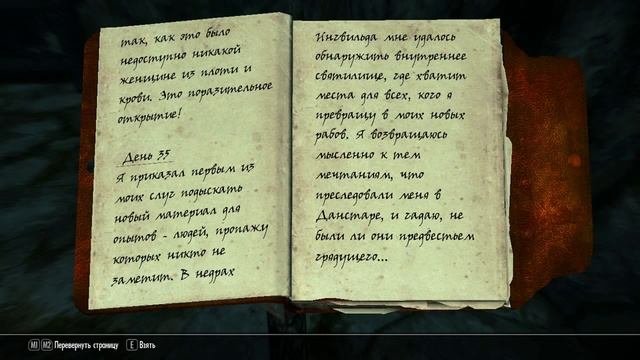 так, как это было
недоступно никакой
женщине из плоти и
крови. Это поразительное
открытие!
День 35
Я приказал первым из
моих слуг подыскать
новый материал для
опытов - людей, пропажу
которых никто не
заметит. В недрах
Ингвильда мне удалось
обнаружить внутреннее
святилище, где хватит
места для всех, кого я
превращу в моих новых
рабов. Я возвращаюсь
мысленно к тем
мечтаниям, что
преследовали меня в
Данстаре, и гадаю, не
были ли они предвестьем
грядущего...
M1 M2 Перевернуть страницу E Взять